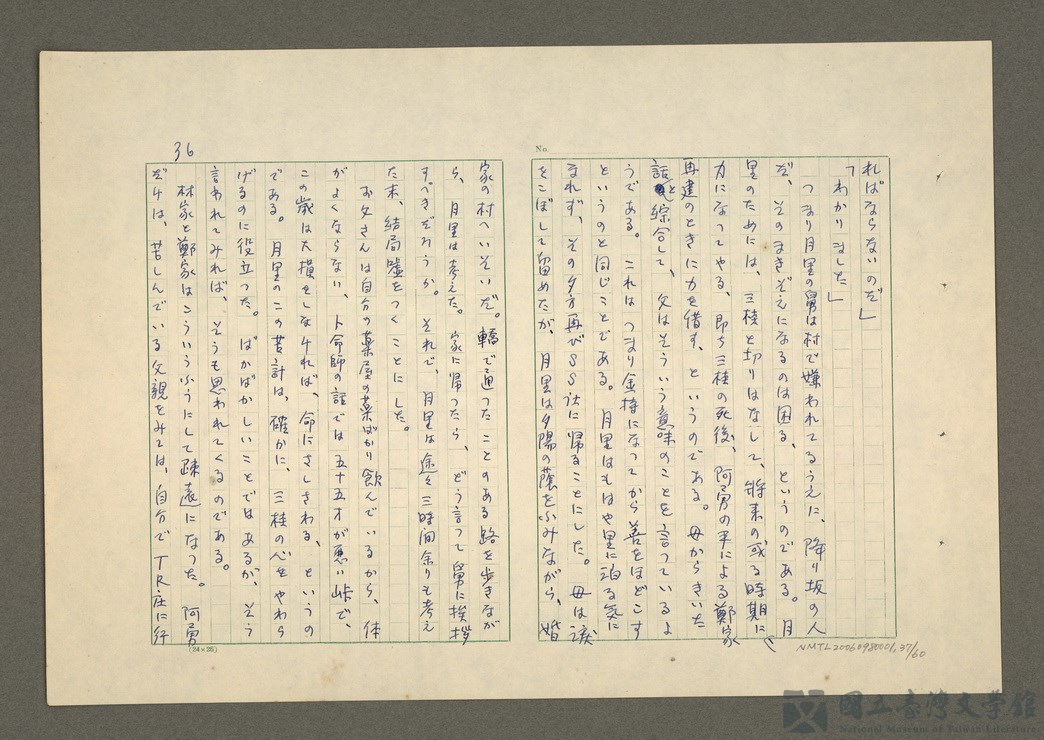 No.
ればならないのだ」
「わかりました」
つまり月里の舅は村で嫌われてるうえに、降り坂の人
だ、そのまきぞえになるのは困る、というのである。月
里のためには、三桂と切りはなして、将来の或る時期に
力になってやる、即ち三桂の死後、阿勇の手による鄭家
再建のときに力を借す、というのである。母からきいた
話と綜合して、父はそういう意味のことを言っているよ
うである。これはつまり金持になってから善をほどこす
というのと同じことである。月里はもはや里に泊る気に
なれず、その夕方再びSS社に帰ることにした。母は涙
をこぼして留めたが、月里は夕陽の蔭をふみながら、婚
家の村へいそいだ。轎で通ったことのある路を歩きなが
ら、月里は考えた。家に帰ったら、どう言って舅に挨拶
すべきだろうか。それで、月里は途々三時間余りも考え
た末、結局嘘をつくことにした。
お父さんは自分の薬屋の薬ばかり飲んでいるから、体
がよくならない、卜命師の話では五十五才が悪い峠で、
この歳は大損をしなければ、命にさしさわる、というの
である。月里のこの苦計は、確かに、三桂の心をやわら
げるのに役立った。ばかばかしいことではあるが、そう
言われてみれば、そうも思われてくるのである。
林家と鄭家はこういうふうにして疎遠になった。阿勇
だけは、苦しんでいる父親をみては、自分でTR庄に行
36
(24×25)
NMTL20060980001.37/60
國立臺灣文學館
National Museum of Taiwan Literature